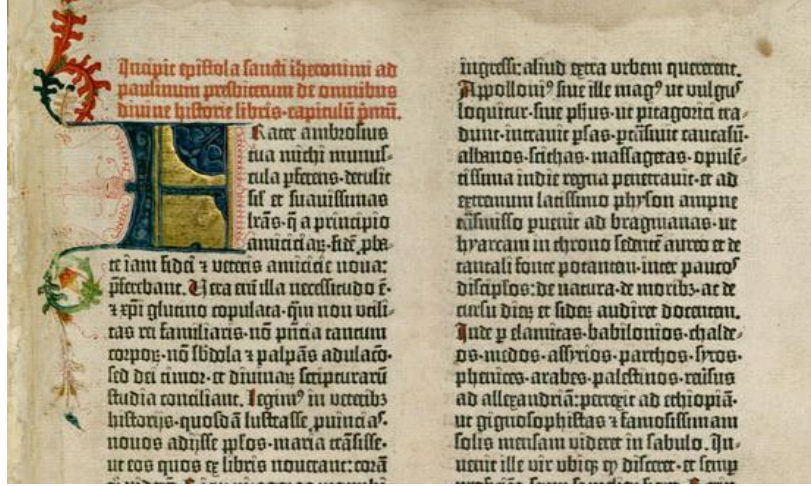 Incipit epistola sancti iheronimi ad
paulinum presbiterum de omnibus
divine historie libris·capitulũ pmũ.
Frater ambrosius
tua michi munus-
cula pferens·detulit
sil̃ et suavissimas
lrãs·q̃ a principio
amiciciaꝝ·fidẽ ꝓba-
te iam fidei ⁊ veteris amicicie nova:
pferebant. Vera enĩ illa necessitudo ẽ·
⁊ xp̃i glutino copulata·qm̃ non utili-
tas rei familiaris·nõ pñcia tantum
corpoꝝ·nõ sbdola ⁊ palpãs adulacõ·
sed dei timor·et divinaꝝ scripturarũ
studia conciliant. Legimꝰ in veteribꝫ
historijs·quosdã lustrasse ꝓvincias·
novos adijsse pplos·maria trãsisse·
ut eos quos ex libris noverant: corã
ingressꝰ: aliud extra urbem quererent.
Appolloniꝰ sive ille magꝰ ut vulgus
loquitur·sive phus·ut pitagorici tra-
dunt·intravit psas·ptrãsivit caucasũ·
albanos·scithas·massagetas·opulẽ-
tissima indie regna penetravit·et ad
extremum latissimo physon ampne
trãsmisso pvenit ad bragmanas·ut
hyarcam in throno sedentẽ aureo et de
tantali fonte potantem·inter paucos
discipulos: de natura·de moribꝫ·ac de
cursu dieꝝ et sideꝝ audiret docentem.
Inde p elamitas·babilonios·chalde-
os·medos·assyrios·parthos·syros·
phenices·arabes·palestinos·reversus
ad allexandriã: perrexit ad ethiopiã·
ut gignosophistas ⁊ famosissimam
solis mensam videret in sabulo. In-
venit ille vir ubiqꝫ qꝫ disceret·et semp